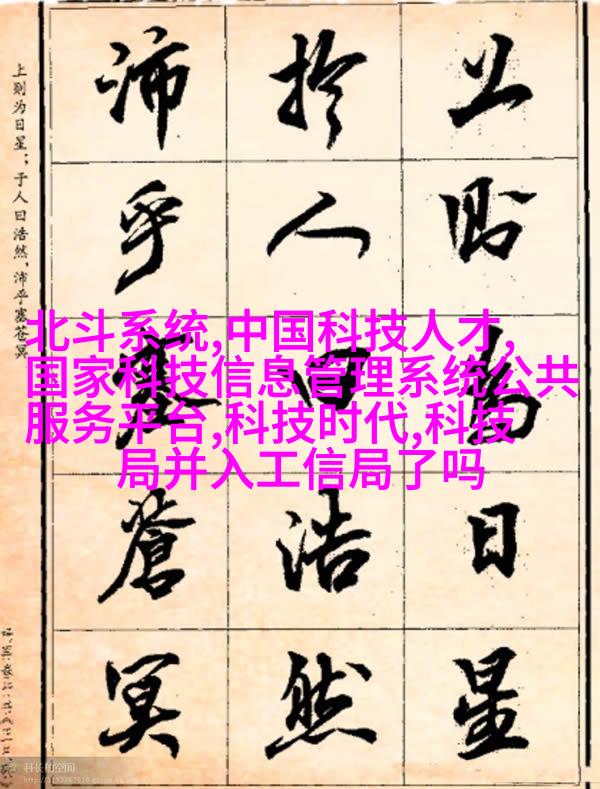 上則為日星
扵人曰浩然
沛乎塞蒼冥
上则为日星；于人曰浩然，沛乎塞苍冥
北斗系统,中国科技人才,
国家科技信息管理系统公共
服务平台,科技时代,科技
局并入工信局了吗
科长的空间